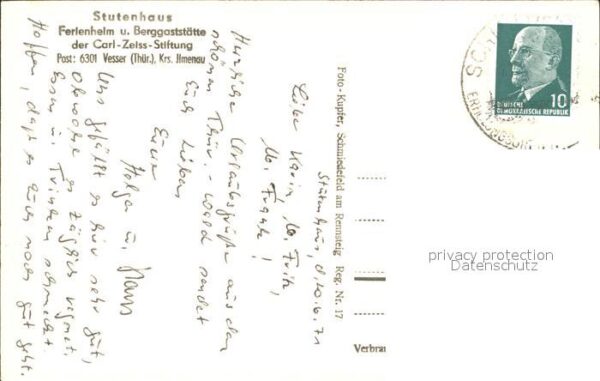 Stutenhaus
Ferienheim u. Berggaststätte
der Carl-Zeiss-Stiftung
Post: 6301 Vesser (Thür.), Krs. Ilmenau
Stutenhaus, d. 20.6.71
Liebe Karin, lb. Fritz,
lb. Frank!
Herzliche Urlaubsgrüße aus dem
schönen Thür.-wald sendet
Euch Lieben
Eure
Holger u. Hans
Uns gefällt es hier sehr gut,
obwohl es täglich regnet.
Essen u. Trinken schmeckt.
Hoffen, daß es Euch noch gut geht.
Foto-Kupfer, Schmiedefeld am Rennsteig Reg. Nr. 17
10
DEUTSCHE
DEMOKRATISCHE REPUBLIK
privacy protection
Datenschutz
Verbrau